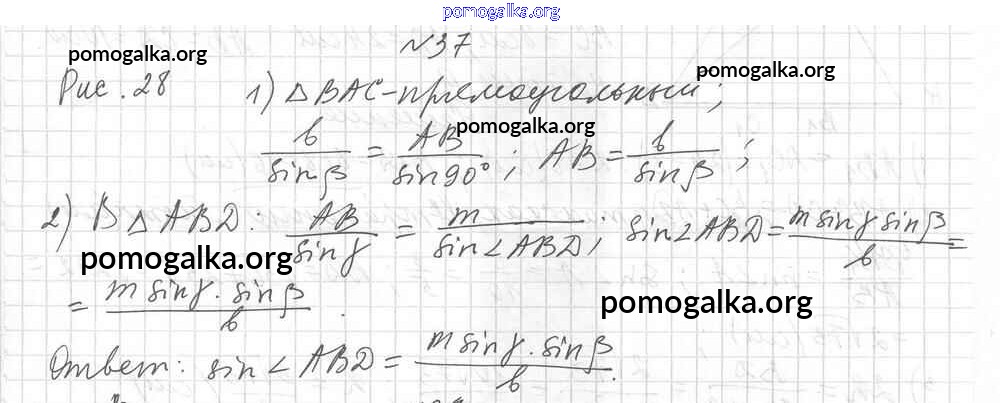 pomogalka.org
№37
pomogalka.org
Рис. 28 1) △BAC-прямоугольный;
pomogalka.org
b/sinβ = AB/sin90°; AB = b/sinβ;
pomogalka.org
2) В △ABD: AB/sinγ = m/sin∠ABD; sin∠ABD = m sinγ sinβ/b =
pomogalka.org
= m sinγ · sinβ/b.
pomogalka.org
Ответ: sin∠ABD = m sinγ · sinβ/b.